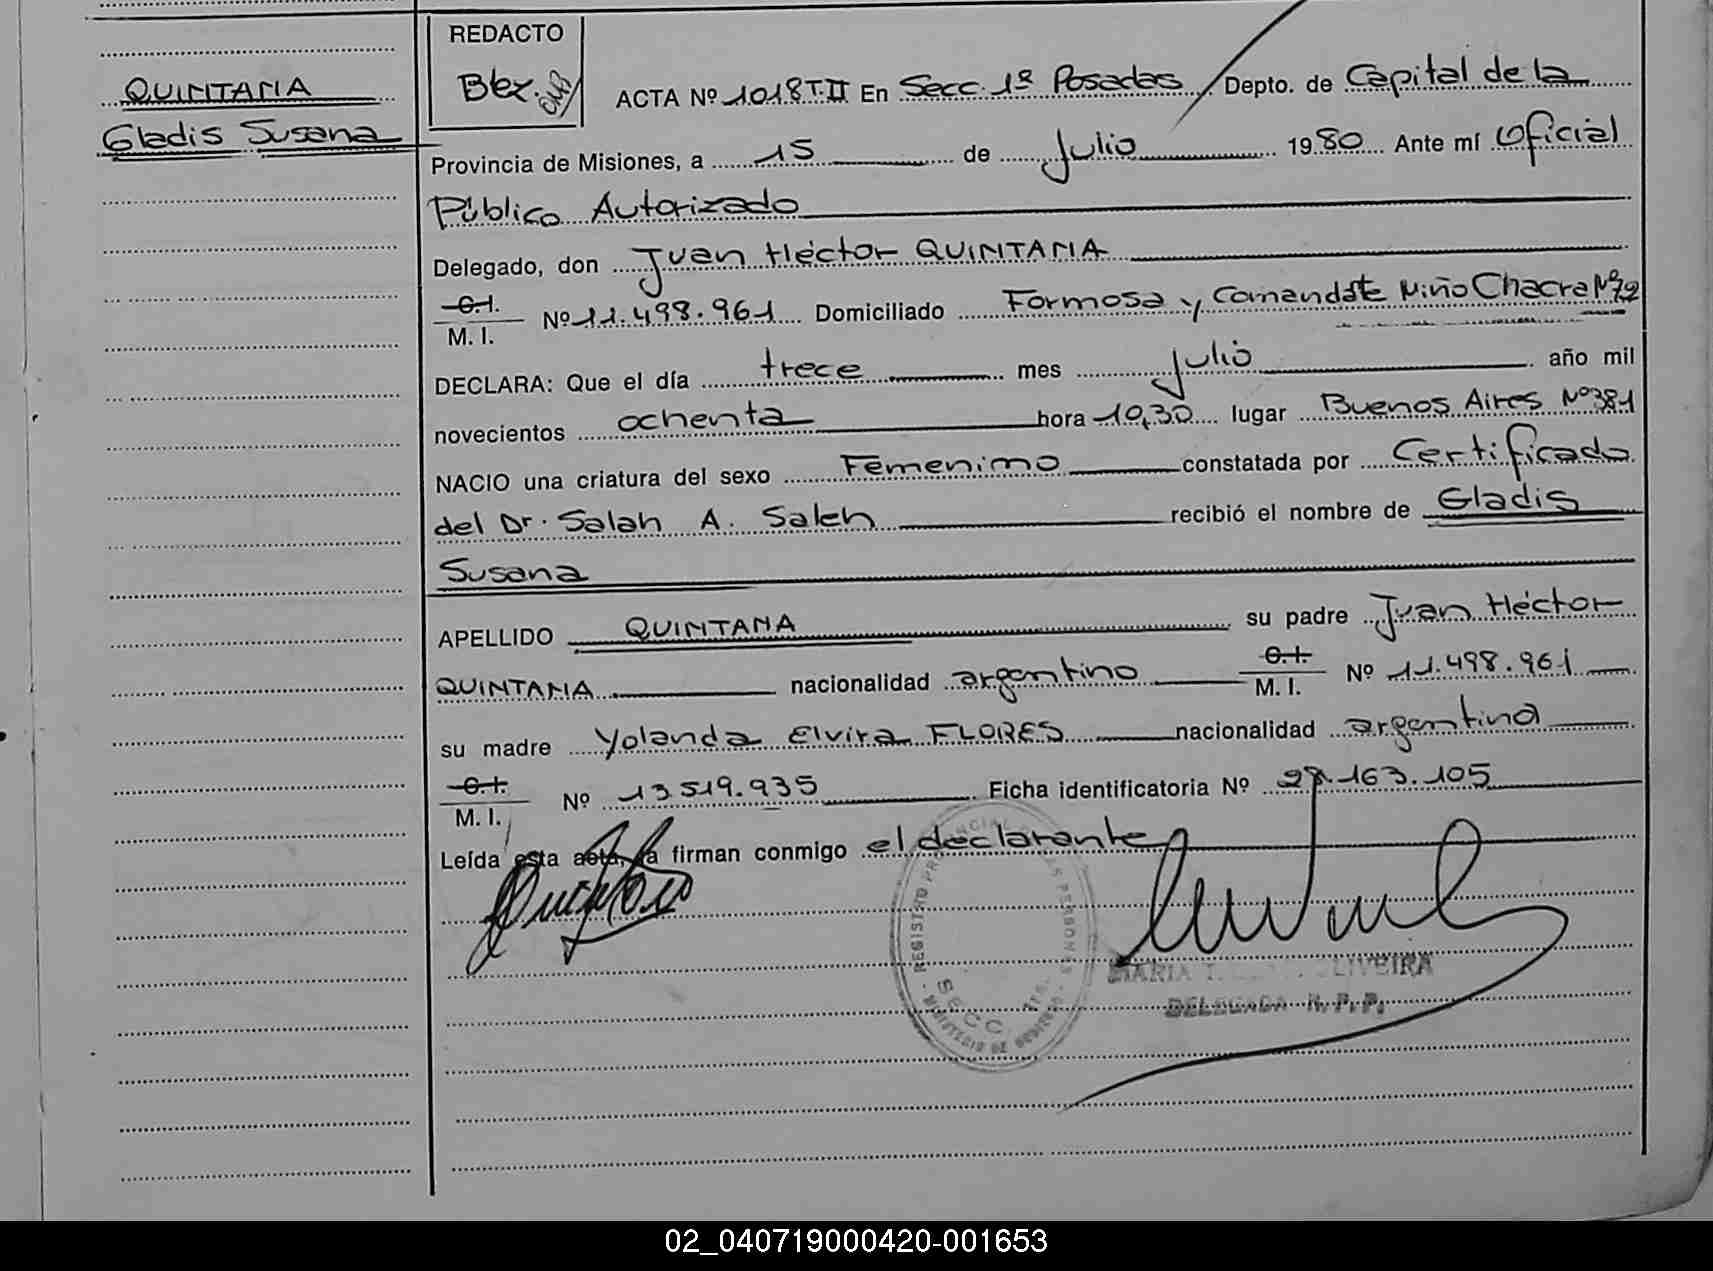 QUINTANA
Gladis Susana
REDACTO
Bez.
ACTA Nº 1018 T II En Secc. 1ª Posadas Depto. de Capital de la
Provincia de Misiones, a 15 de Julio 1980 Ante mí Oficial
Público Autorizado
Delegado, don Juan Héctor QUINTANA
C.I.
M. I. Nº 11.498.961 Domiciliado Formosa y Comandate Miño Chacra Nº 72
DECLARA: Que el día trece mes julio año mil
novecientos ochenta hora 10,30 lugar Buenos Aires Nº 381
NACIO una criatura del sexo Femenino constatada por Certificado
del Dr. Salah A. Saleh recibió el nombre de Gladis
Susana
APELLIDO QUINTANA su padre Juan Héctor
QUINTANA nacionalidad argentino C.I. M. I. Nº 11.498.961
su madre Yolanda Elvira FLORES nacionalidad argentina
C.I.
M. I. Nº 13.519.935 Ficha identificatoria Nº 28.163.105
Leída esta acta, la firman conmigo el declarante
REGISTRO PROVINCIAL LAS PERSONAS
SECC.
MINISTERIO DE GOBIERNO
MARIA T. OLIVEIRA
DELEGADA R.P.P.
02_040719000420-001653